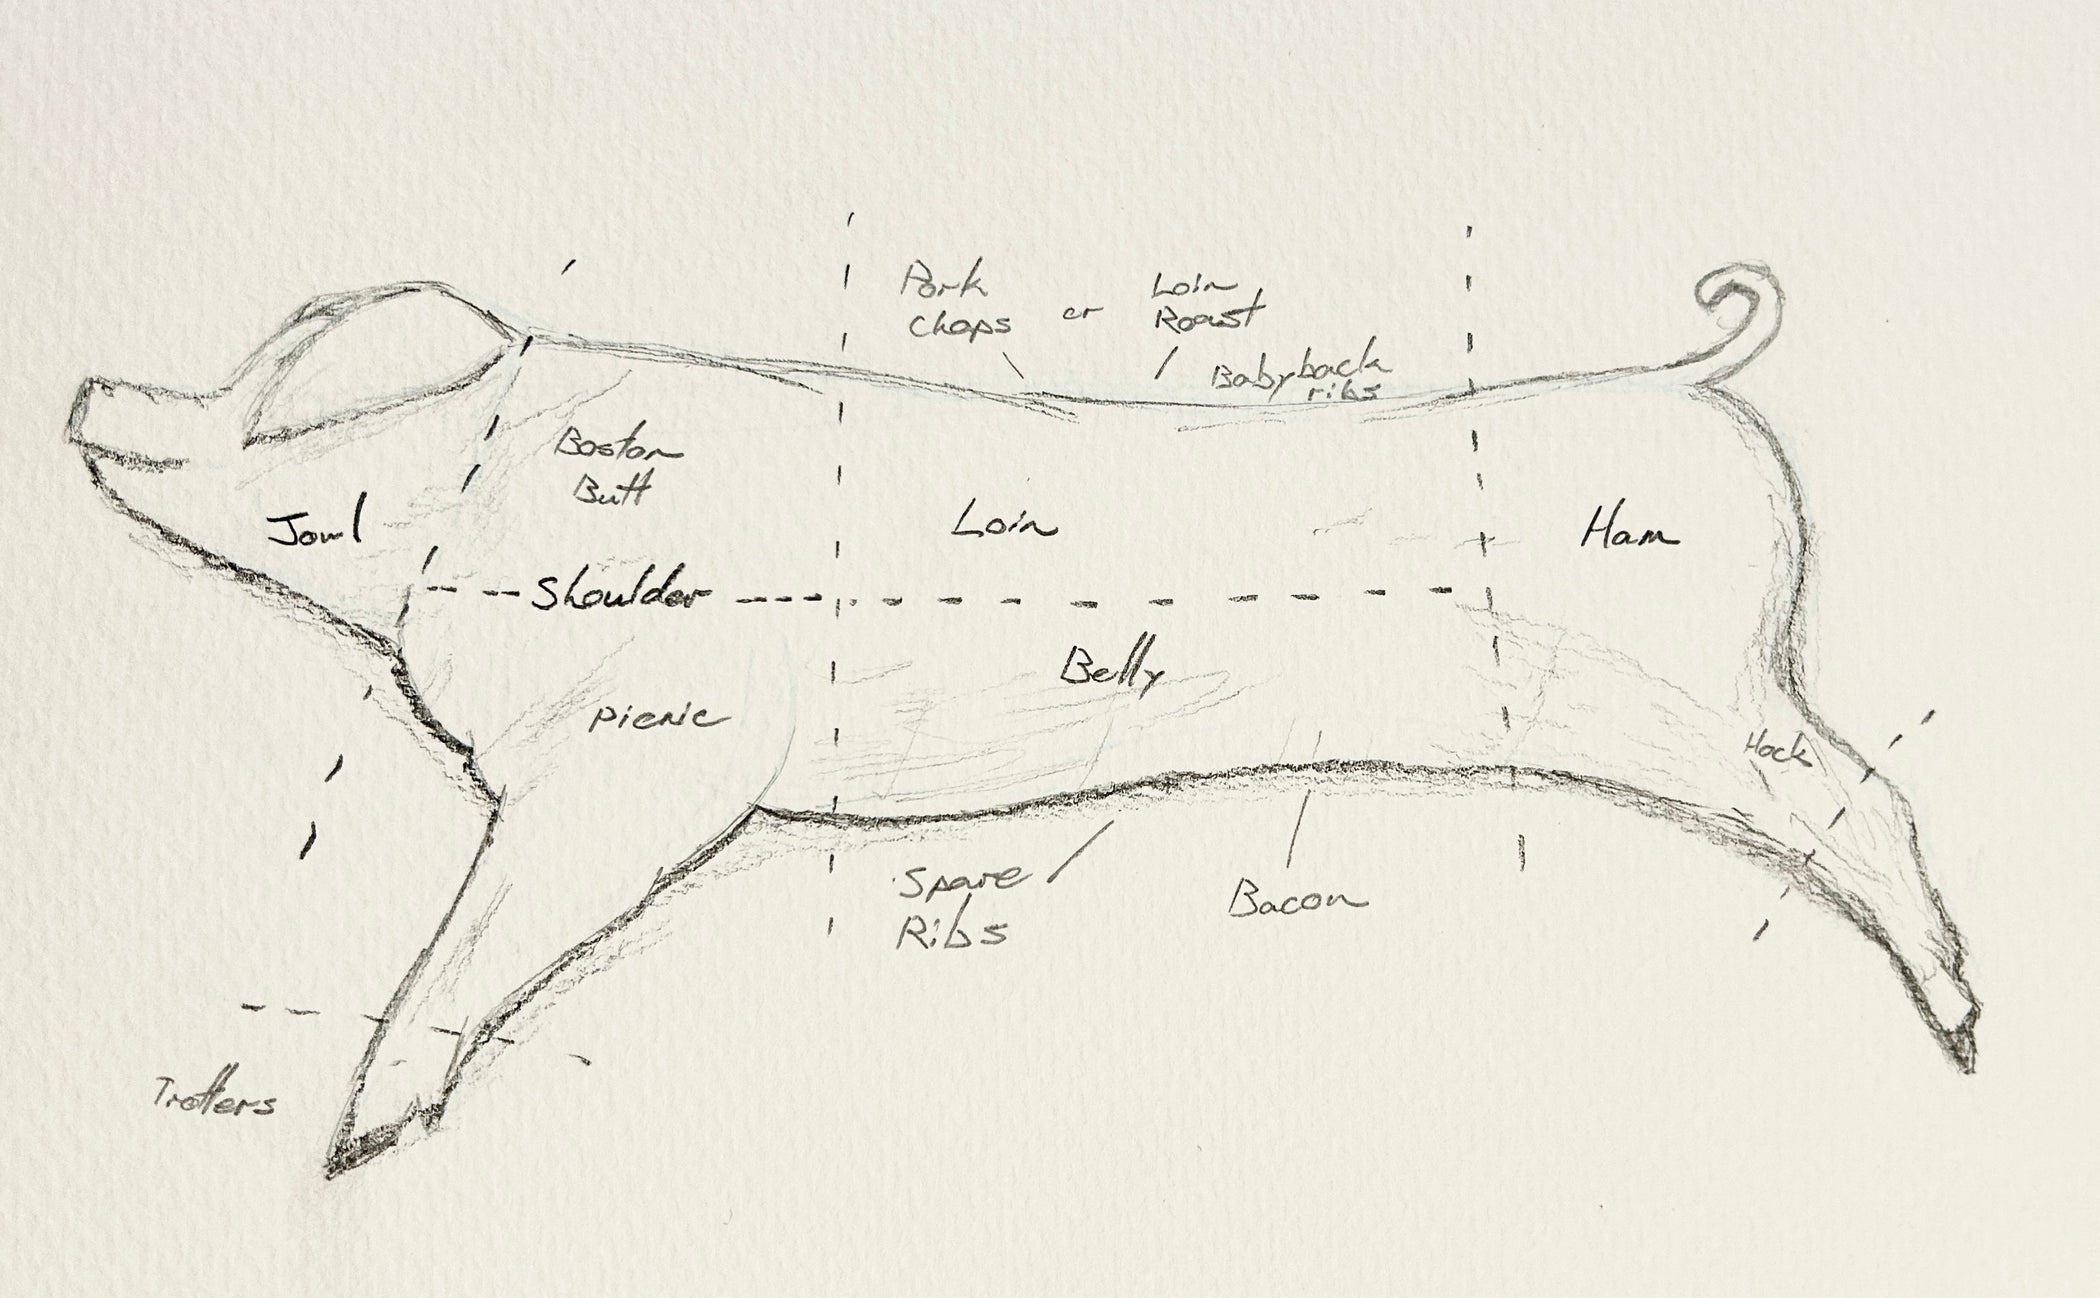 Pork
Chops
or
Loin
Roast
Babyback
ribs
Boston
Butt
Jowl
Loin
Ham
Shoulder
Belly
Picnic
Hock
Spare
Ribs
Bacon
Trotters